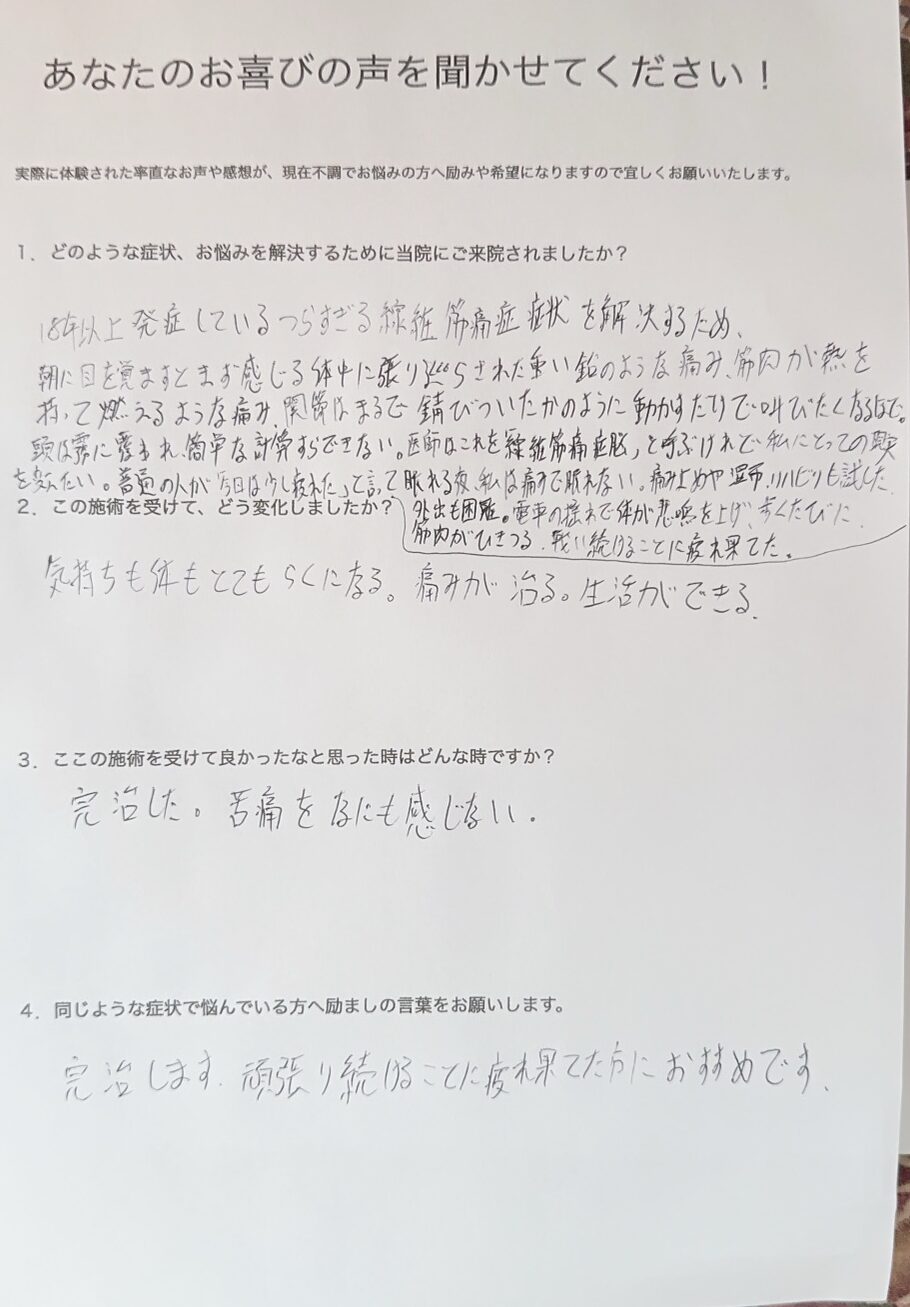 あなたのお喜びの声を聞かせてください！
実際に体験された率直なお声や感想が、現在不調でお悩みの方へ励みや希望になりますので宜しくお願いいたします。
1．どのような症状、お悩みを解決するために当院にご来院されましたか？
18年以上発症しているつらすぎる線維筋痛症症状を解決するため、
朝に目を覚ますとまず感じる体中に張りめぐらされた重い鉛のような痛み、筋肉が熱を
持って燃えるような痛み、関節はまるで錆びついたかのように動かすたびで叫びたくなるほど。
頭は霧に覆まれ、簡単な計算すらできない。医師はこれを「線維筋痛症脳」と呼ぶけれど、私にとっての
普通の人が「今日は少し疲れた」と言って眠れる夜、私は痛みで眠れない。痛み止めや湿布、リハビリも試した
外出も困難。電車の揺れで体が悲鳴を上げ、歩くたびに
筋肉がひきつる、戦い続けることに疲れ果てた。
2．この施術を受けて、どう変化しましたか？
気持ちも体もとてもらくになる。痛みが治る。生活ができる.
3．ここの施術を受けて良かったなと思った時はどんな時ですか？
完治した。苦痛をなにも感じない.
4．同じような症状で悩んでいる方へ励ましの言葉をお願いします。
完治します. 頑張り続けることに疲れ果てた方におすすめです.